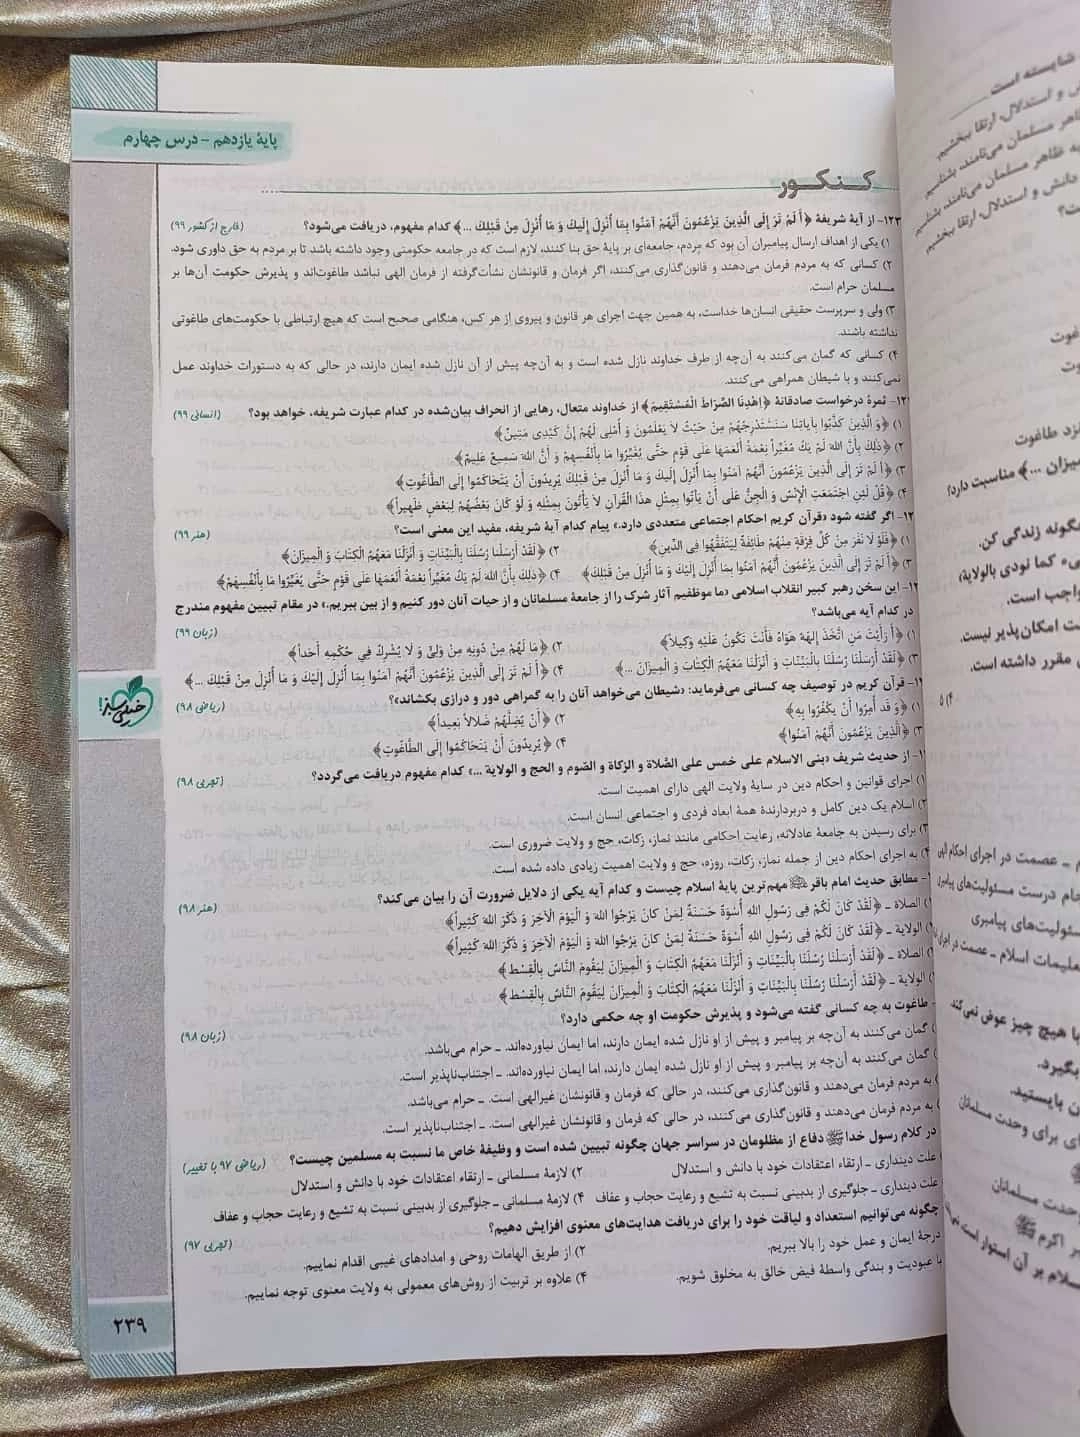 پایهٔ یازدهم - درس چهارم
کـنـکـور
۱۲۳- از آیهٔ شریفهٔ ﴿أ لَمْ تَرَ إِلَی الَّذِینَ یَزْعُمُونَ أَنَّهُمْ آمَنُوا بِمَا أُنْزِلَ إِلَیكَ وَ مَا أُنْزِلَ مِنْ قَبْلِكَ ...﴾ کدام مفهوم، دریافت می‌شود؟ (خارج از کشور ۹۹)
۱) یکی از اهداف ارسال پیامبران آن بود که مردم، جامعه‌ای بر پایهٔ حق بنا کنند، لازم است که در جامعه حکومتی وجود داشته باشد تا بر مردم به حق داوری شود.
۲) کسانی که به مردم فرمان می‌دهند و قانون‌گذاری می‌کنند، اگر فرمان و قانونشان نشأت‌گرفته از فرمان الهی نباشد طاغوت‌اند و پذیرش حکومت آن‌ها بر
مسلمان حرام است.
۳) ولی و سرپرست حقیقی انسان‌ها خداست، به همین جهت اجرای هر قانون و پیروی از هر کس، هنگامی صحیح است که هیچ ارتباطی با حکومت‌های طاغوتی
نداشته باشند.
۴) کسانی که گمان می‌کنند به آن‌چه از طرف خداوند نازل شده است و به آن‌چه پیش از آن نازل شده ایمان دارند، در حالی که به دستورات خداوند عمل
نمی‌کنند و با شیطان همراهی می‌کنند.
ثمرهٔ درخواست صادقانهٔ ﴿اِهْدِنَا الصِّرَاطَ الْمُسْتَقِیمَ﴾ از خداوند متعال، رهایی از انحراف بیان‌شده در کدام عبارت شریفه، خواهد بود؟ (انسانی ۹۹)
۱) ﴿وَ الَّذِینَ کَذَّبُوا بِآیَاتِنَا سَنَسْتَدْرِجُهُمْ مِنْ حَیْثُ لاَ یَعْلَمُونَ وَ أُمْلِی لَهُمْ إِنَّ کَیْدِی مَتِینٌ﴾
۲) ﴿ذلِكَ بِأَنَّ اللهَ لَمْ یَكُ مُغَیِّراً نِعْمَةً أَنْعَمَهَا عَلَی قَوْمٍ حَتَّی یُغَیِّرُوا مَا بِأَنْفُسِهِمْ وَ أَنَّ اللهَ سَمِیعٌ عَلِیمٌ﴾
۳) ﴿أ لَمْ تَرَ إِلَی الَّذِینَ یَزْعُمُونَ أَنَّهُمْ آمَنُوا بِمَا أُنْزِلَ إِلَیكَ وَ مَا أُنْزِلَ مِنْ قَبْلِكَ یُرِیدُونَ أَنْ یَتَحَاکَمُوا إِلَی الطَّاغُوتِ﴾
۴) ﴿قُلْ لَئِنِ اجْتَمَعَتِ الْإِنْسُ وَ الْجِنُّ عَلَی أَنْ یَأتُوا بِمِثْلِ هذَا الْقُرآنِ لاَ یَأتُونَ بِمِثْلِهِ وَ لَوْ کَانَ بَعْضُهُمْ لِبَعْضٍ ظَهِیراً﴾
اگر گفته شود «قرآن کریم احکام اجتماعی متعددی دارد.» پیام کدام آیهٔ شریفه، مفید این معنی است؟ (هنر ۹۹)
۱) ﴿فَلَوْ لاَ نَفَرَ مِنْ کُلِّ فِرْقَةٍ مِنْهُمْ طَائِفَةٌ لِیَتَفَقَّهُوا فِی الدِّینِ﴾ ۲) ﴿لَقَدْ أَرْسَلْنَا رُسُلَنَا بِالْبَیِّنَاتِ وَ أَنْزَلْنَا مَعَهُمُ الْکِتَابَ وَ الْمِیزَانَ﴾
۳) ﴿أ لَمْ تَرَ إِلَی الَّذِینَ یَزْعُمُونَ أَنَّهُمْ آمَنُوا بِمَا أُنْزِلَ إِلَیكَ وَ مَا أُنْزِلَ مِنْ قَبْلِكَ﴾ ۴) ﴿ذلِكَ بِأَنَّ اللهَ لَمْ یَكُ مُغَیِّراً نِعْمَةً أَنْعَمَهَا عَلَی قَوْمٍ حَتَّی یُغَیِّرُوا مَا بِأَنْفُسِهِمْ﴾
این سخن رهبر کبیر انقلاب اسلامی «ما موظفیم آثار شرک را از جامعهٔ مسلمانان و از حیات آنان دور کنیم و از بین ببریم.» در مقام تبیین مفهوم مندرج
در کدام آیه می‌باشد؟ (زبان ۹۹)
۱) ﴿أ رَأَیْتَ مَنِ اتَّخَذَ إِلهَهُ هَوَاهُ فَأَنْتَ تَکُونُ عَلَیْهِ وَکِیلاً﴾ ۲) ﴿مَا لَهُمْ مِنْ دُونِهِ مِنْ وَلِیٍّ وَ لاَ یُشْرِكُ فِی حُکْمِهِ أَحَداً﴾
۳) ﴿لَقَدْ أَرْسَلْنَا رُسُلَنَا بِالْبَیِّنَاتِ وَ أَنْزَلْنَا مَعَهُمُ الْکِتَابَ وَ الْمِیزَانَ ...﴾ ۴) ﴿أ لَمْ تَرَ إِلَی الَّذِینَ یَزْعُمُونَ أَنَّهُمْ آمَنُوا بِمَا أُنْزِلَ إِلَیكَ وَ مَا أُنْزِلَ مِنْ قَبْلِكَ ...﴾
قرآن کریم در توصیف چه کسانی می‌فرماید: «شیطان می‌خواهد آنان را به گمراهی دور و درازی بکشاند»؟ (ریاضی ۹۸)
۱) ﴿وَ قَد أُمِرُوا أَنْ یَکْفُرُوا بِهِ﴾ ۲) ﴿أَنْ یُضِلَّهُمْ ضَلاَلاً بَعِیداً﴾
۳) ﴿الَّذِینَ یَزْعُمُونَ أَنَّهُمْ آمَنُوا﴾ ۴) ﴿یُرِیدُونَ أَنْ یَتَحَاکَمُوا إِلَی الطَّاغُوتِ﴾
خیلی سبز!
از حدیث شریف «بنی الاسلام علی خمس علی الصَّلاة و الزکاة و الصَّوم و الحج و الولایة ...» کدام مفهوم دریافت می‌گردد؟ (تجربی ۹۸)
۱) اجرای قوانین و احکام دین در سایهٔ ولایت الهی دارای اهمیت است.
۲) اسلام یک دین کامل و دربردارندهٔ همهٔ ابعاد فردی و اجتماعی انسان است.
۳) برای رسیدن به جامعهٔ عادلانه، رعایت احکامی مانند نماز، زکات، حج و ولایت ضروری است.
۴) به اجرای احکام دین از جمله نماز، زکات، روزه، حج و ولایت اهمیت زیادی داده شده است.
مطابق حدیث امام باقر مهم‌ترین پایهٔ اسلام چیست و کدام آیه یکی از دلایل ضرورت آن را بیان می‌کند؟ (هنر ۹۸)
الصلاة ـ ﴿لَقَدْ کَانَ لَکُمْ فِی رَسُولِ اللهِ أُسْوَةٌ حَسَنَةٌ لِمَنْ کَانَ یَرْجُوا اللهَ وَ الْیَوْمَ الْآخِرَ وَ ذَکَرَ اللهَ کَثِیراً﴾
الولایة ـ ﴿لَقَدْ کَانَ لَکُمْ فِی رَسُولِ اللهِ أُسْوَةٌ حَسَنَةٌ لِمَنْ کَانَ یَرْجُوا اللهَ وَ الْیَوْمَ الْآخِرَ وَ ذَکَرَ اللهَ کَثِیراً﴾
الصلاة ـ ﴿لَقَدْ أَرْسَلْنَا رُسُلَنَا بِالْبَیِّنَاتِ وَ أَنْزَلْنَا مَعَهُمُ الْکِتَابَ وَ الْمِیزَانَ لِیَقُومَ النَّاسُ بِالْقِسْط﴾
الولایة ـ ﴿لَقَدْ أَرْسَلْنَا رُسُلَنَا بِالْبَیِّنَاتِ وَ أَنْزَلْنَا مَعَهُمُ الْکِتَابَ وَ الْمِیزَانَ لِیَقُومَ النَّاسُ بِالْقِسْط﴾
طاغوت به چه کسانی گفته می‌شود و پذیرش حکومت او چه حکمی دارد؟ (زبان ۹۸)
گمان می‌کنند به آن‌چه بر پیامبر و پیش از او نازل شده ایمان دارند، اما ایمان نیاورده‌اند. ـ حرام می‌باشد.
گمان می‌کنند به آن‌چه بر پیامبر و پیش از او نازل شده ایمان دارند، اما ایمان نیاورده‌اند. ـ اجتناب‌ناپذیر است.
به مردم فرمان می‌دهند و قانون‌گذاری می‌کنند، در حالی که فرمان و قانونشان غیرالهی است. ـ حرام می‌باشد.
به مردم فرمان می‌دهند و قانون‌گذاری می‌کنند، در حالی که فرمان و قانونشان غیرالهی است. ـ اجتناب‌ناپذیر است.
در کلام رسول خدا دفاع از مظلومان در سراسر جهان چگونه تبیین شده است و وظیفهٔ خاص ما نسبت به مسلمین چیست؟ (ریاضی ۹۷ با تغییر)
علت دینداری ـ ارتقاء اعتقادات خود با دانش و استدلال ۲) لازمهٔ مسلمانی ـ ارتقاء اعتقادات خود با دانش و استدلال
علت دینداری ـ جلوگیری از بدبینی نسبت به تشیع و رعایت حجاب و عفاف ۴) لازمهٔ مسلمانی ـ جلوگیری از بدبینی نسبت به تشیع و رعایت حجاب و عفاف
چگونه می‌توانیم استعداد و لیاقت خود را برای دریافت هدایت‌های معنوی افزایش دهیم؟ (تجربی ۹۷)
درجهٔ ایمان و عمل خود را بالا ببریم. ۲) از طریق الهامات روحی و امدادهای غیبی اقدام نماییم.
با عبودیت و بندگی واسطهٔ فیض خالق به مخلوق شویم. ۴) علاوه بر تربیت از روش‌های معمولی به ولایت معنوی توجه نماییم.
۲۳۹
شایسته است
و استدلال، ارتقا ببخشیم.
ظاهر مسلمان می‌نامند، بشناسیم
به ظاهر مسلمان می‌نامند، بشناسیم
دانش و استدلال، ارتقا ببخشیم
طاغوت
نزد طاغوت
میزان ...﴾ مناسبت دارد؟
گونه زندگی کن.
کما نودی بالولایة»
واجب است.
امکان‌پذیر نیست.
مقرر داشته است.
۴) ۵
عصمت در اجرای احکام الهی
انجام درست مسئولیت‌های پیامبری
مسئولیت‌های پیامبری
تعلیمات اسلام ـ عصمت در اجرای
با هیچ چیز عوض نمی‌کند.
بگیرد.
بایستید.
برای وحدت مسلمانان
وحدت مسلمانان
اکرم
اسلام بر آن استوار است